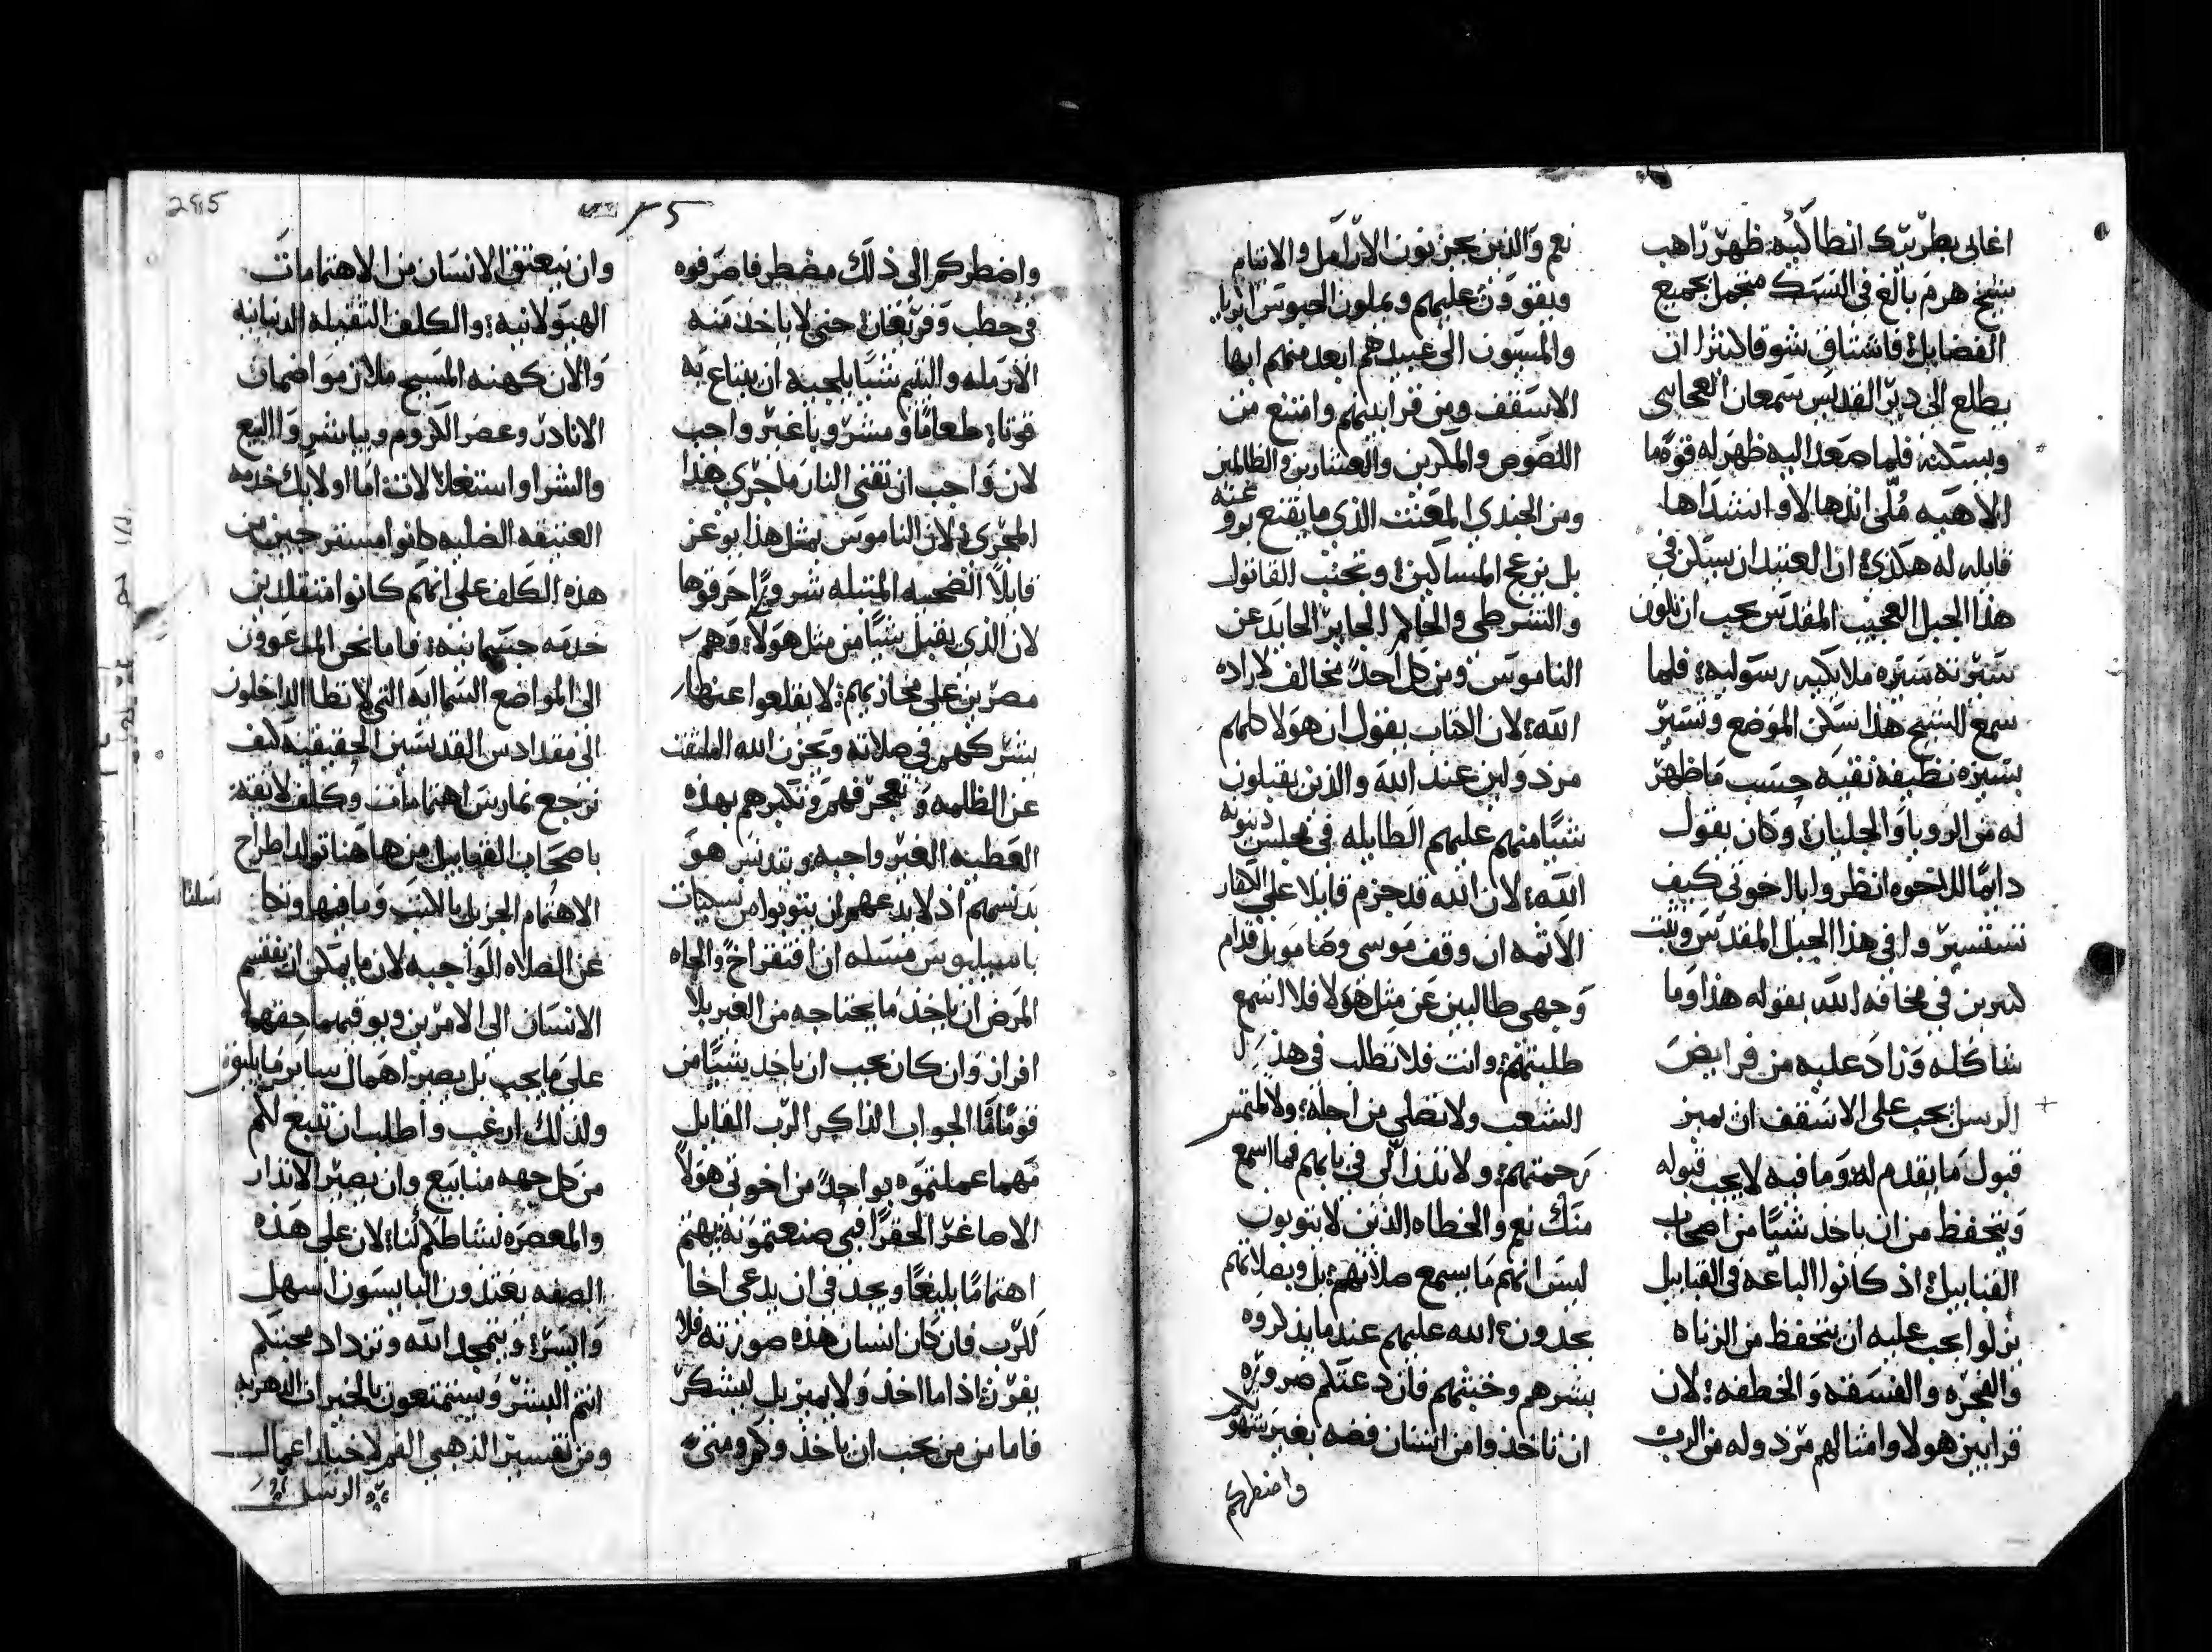 اغابي بطريرك انطاكيه ظهر راهب
شيخ هرم بالغ في النسك متجمل بجميع
الفضايل فاشتاق شوقا كثيرا ان
يطلع الى دير القديس سمعان العجايبي
ويسكنه فلما صعد اليه ظهر له قوة ما
الاهيه
قايله له هكذي ان العتيد ان يسكن في
هذا الجبل العجيب المقدس يجب ان تكون
سيرته سيره ملايكيه رسوليه فلما
سمع الشيخ هذا سكن الموضع وتسير
بسيره نظيفه نقيه حسب ما ظهر
له من الرويا والجليان وكان يقول
دايما للاخوه انظروا يا اخوتي كيف
تستسيروا في هذا الجبل المقدس
في مخافه الله بقوله هذا وما
شاكله وزاد عليه من فرايض
الرسل يجب على الاسقف ان يميز
قبول ما يقدم له وما فيه لا يجب قبوله
ويتحفظ من ان ياخذ شيا من اصحاب
القبابيل اذ كانوا الباعه في القبابيل
نزلوا يجب عليه ان يتحفظ من الزناه
والفجره والفسقه والخطفه لان
قرابين هولا وامثالهم مردوله من الرب
نعم والذين يحزنون الارامل والايتام
ويقوون عليهم ويملون الحبوس ابريا
والمسيون الى عبيدهم ابعد منهم ايها
الاسقف ومن قرابينهم وامتنع من
اللصوص والمكرين والعشارين والظالمين
ومن الجندي المعنت الذي ما يقنع
بل يزعج المساكين وتجنب القاتول
والشرطي والحاكم الجاير الحايد عن
الناموس ومن كل احد مخالف لاراده
الله لان الكتاب يقول ان هولا كلهم
مردولين عند الله والذين يقبلون
شيا منهم عليهم الطايله في مجلس دينونه
الله لان الله قد جزم قايلا على
الاثمه ان وقف موسى وصامويل قدام
وجهي طالبين عن مثل هولا فلا اسمع
طلبتهم وانت فلا تطلب في هذا
الشعب ولا تصلي من اجله ولا تلتمس
رحمتهم ولا في بابهم فما اسمع
منك نعم والخطاه الذين لا يتوبون
ليس انهم ما يسمع صلاتهم بل وبصلاتهم
يحردون الله عليهم عندما يذكروه
بشرهم وخبثهم فان دعتكم ضروره
ان تاخذوا من انسان فضه بغير
واضطركم
295
واضطركم الى ذلك مضطر فاصرفوه
في حطب وفي حتى لا ياخذ منه
الارمله واليتيم شيا يلجيه ان يبتاع به
قوتا طعاما ومشروبا غير واجب
لان واجب ان تفني النار ما جرى هذا
المجرى لان الناموس بمثل هذا يوعز
قايلا الضحيه شرورا احرقوها
لان الذي يقبل شيا من مثل هولا وهم
مصرين على محاربتهم لا يقلعوا عنها
يشركهم في صلاته ويحزن الله
عن الظلمه و تكبرهم بهذه
العطيه الغير واجبه ويتدنس هو
بدنسهم اذ لا يدعهم ان يتوبوا من نسكيات
باسيليوس مسله ان افتقر اخ والجاه
المرض ان ياخذ ما يحتاجه من الغير بلا
افراز وان كان يجب ان ياخذ شيا من
قوم ما الجواب الذاكر الرب القايل
مهما عملتموه بواحد من اخوتي هولا
الاصاغر الحقرا فبي صنعتموه يهتم
اهتماما بليغا ويجد في ان يدعى اخا
للرب فان كان انسان هذه صورته فلا
يفرق اذا ما اخذ ولا يميز بل ليشكر
فاما من من يجب ان ياخذ وكم ومتى
وان ينعتق الانسان من الاهتمامات
الهيولانيه والكلف الثقيله الدنيانيه
والان كهنه المسيح ملازموا ضمان
الانادر وعصر الكروم ويباشر والبيع
والشرا واستغلال لان اما اولايك خدمه
العتيقه الظليه كانوا مستريحين من
هذه الكلف على انهم كانوا متقلدين
خدمه جسمانيه فاما نحن المدعوون
الى المواضع السماييه التي لا تطا الداخلون
الى مقدادس القديسين الحقيقيه كيف
نرجع نمارس اهتمامات وكلف لايقه
باصحاب القبابيل من هاهنا تولد اطراح
الاهتمام الجزيل بالكتب وما فيها
عن الصلاه الواجبه لان ما يمكن ان ينقسم
الانسان الى الامرين ويوفيهما حقهما
على ما يجب بل يصير اهمال ساير ما يليق
ولذلك ارغب واطلب ان تنبع لكم
من كل جهه منابيع وان يصير الاندار
والمعصره نشاطكم لنا لان على هذه
الصفه يغتذون البايسون اسهل
وايسر ويتمجد الله وتزداد محبتكم
انتم البشر وستمتعون بالخيرات الدهريه
ومن تفسير الذهبي الفم لاخبار اعمال
الرسل